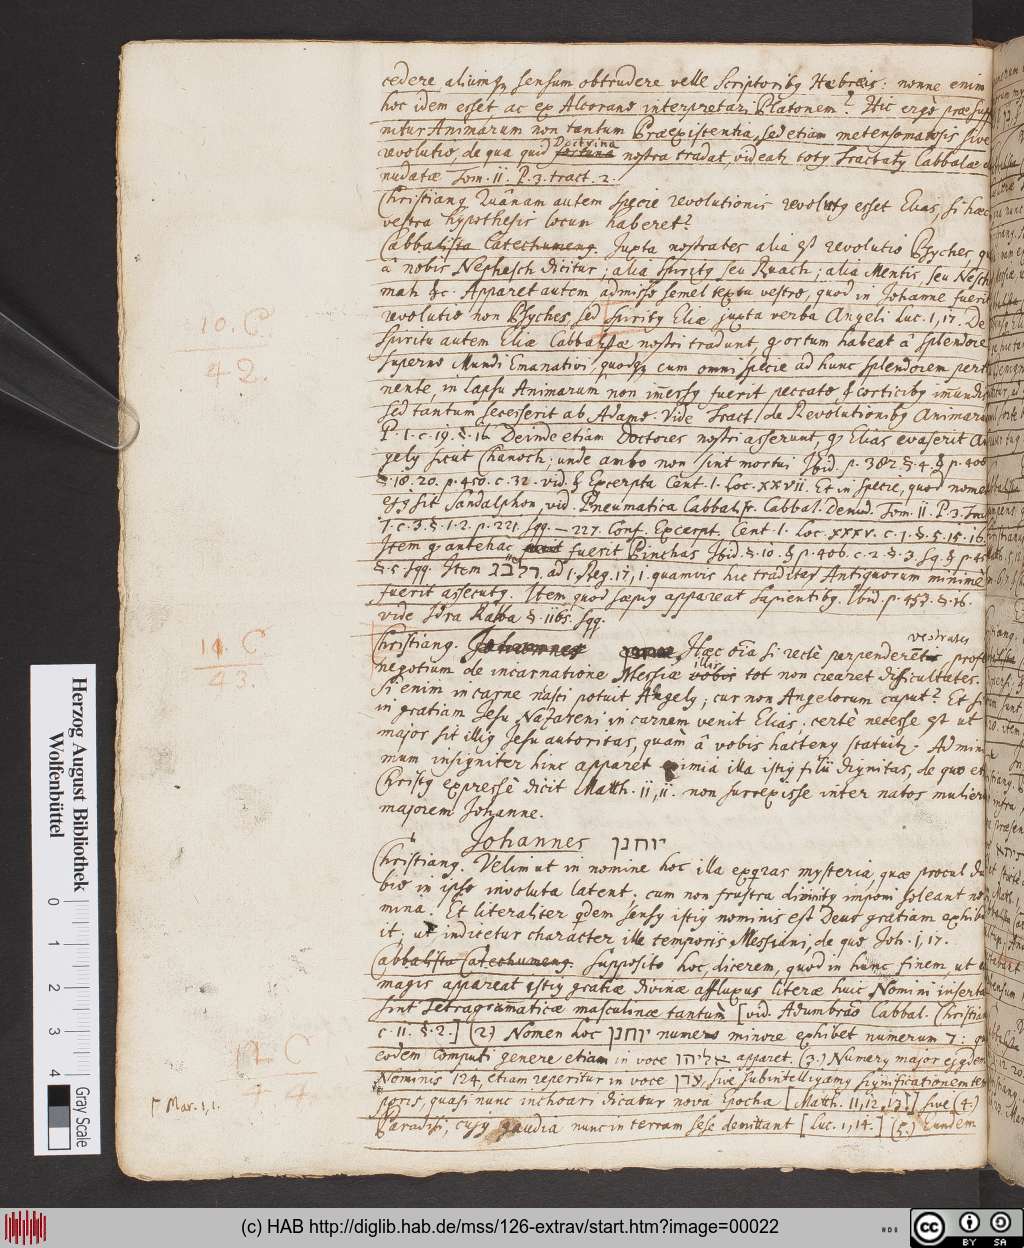 cedere aliumq; sensum obtrudere velle Scriptoribg Hebræis: nonne enim
hoc idem esset, ac ex Alcorano interpretari Platonem? Hic ergò præsup
nitur Animarum non tantum Præexistentia, sed etiam metensomatosis sive
revolutio, de qua quid Doctrina nostra tradat, videatr totg Tractatg Cabbalæ de
nudatæ Tom. II. P. 3. tract. 2.
Christiang. Quânam autem specie revolutionis revolutg esset Elias, si hæc
vestra hypothesis locum haberet?
Cabbalista Catechumeng. Juxta nostrates alia est revolutio Psyches, qu
â nobis Nephesch dicitur; alia Spiritg seu Ruach; alia Mentis, seu Nesch
mah &c. Apparet autem admisso semel textu vestro, quod in Johanne fueri
revolutio non Psyches, sed Spiritg Eliæ juxta verba Angeli Luc. 1, 17. De
10. C.
42.
Spiritu autem Eliæ Cabbalistæ nostri tradunt, q ortum habeat â Splendore
superno Mundi Emanativi, quodq; cum omni specie ad hunc splendorem perti
nente, in lapsu Animarum non imersg fuerit peccato, & corticibg imundis
sed tantum secesserit ab Adamo. Vide Tract. de Revolutionibg Animaru
P. 1. c. 19. §. 16. Deinde etiam Doctores nostri asserunt, q Elias evaserit An
gelg sicut Chanoch; unde ambo non sint mortui Ibid. p. 382 §. 4. & p. 408
§. 18. 20. p. 450. c. 32. vid. & Excerpta Cent. 1. Loc. XXVII. Et in specie, quod nomen
ejg sit Sandalphon, vid. Pneumatica Cabbalist. Cabbal. Denud. Tom. II. P. 3. Trac
1. c. 3. §. 1. 2. p. 221. sqq. — 227. Conf. Excerpt. Cent. 1. Loc. XXXV. c. 1. §. 5. 15. 16.
Item q antehac fuerit Pinchas Ibid. §. 10. & p. 406. c. 2. §. 3. sq. & p. 45
§. 5 sqq. Item רלבג ad 1. Reg. 17, 1. quamvis hic traditas Antiquorum minimè
fuerit assecutg. Item quod sæpig appareat sapientibg. Ibid p. 453. §. 16.
vide Idra Rabba §. 1165. sqq.
11. C
43.
Christiang. Hæc oia si rectè perpenderetis vestrates profe
negotium de incarnatione Messiæ illis tot non crearet difficultates.
Si enim in carne nasci potuit Angelg, cur non Angelorum caput? Et si
in gratiam Jesu Nazareni in carnem venit Elias, certè necesse est ut
major sit illig Jesu autoritas, quàm â vobis hacteng statuitr. Ad mini
mum insigniter hinc apparet eximia illa istig filii dignitas, de quo et
Christg expressè dicit Matth. 11, 11. non surrexisse inter natos muliera
majorem Johanne.
Johannes יוחנן
Christiang. Velim ut in nomine hoc illa exqras mysteria, quæ procul du
bio in ipso involuta latent, cum non frustra divinitg imponi soleant no
mina. Et literaliter qdem sensg istig nominis est Deus gratiam exhibu
it: ut indicetur character ille temporis Messiani, de quo Joh. 1, 17.
Cabbalista Catechumeng. Supposito hoc, dicerem, quod in hunc finem, ut e
magis appareat istig gratiæ divinæ affluxus literæ huic Nomini insertæ
12. C
44.
sint Tetragrammaticæ masculinæ tantùm [vid. Adumbrao Cabbal. Christia
c. 11. §. 2.] (2.) Nomen hoc יוחנן numero minore exhibet numerum 7: qu
eodem computi genere etiam in voce אליהו apparet. (3.) Numerg major ejqdem
Nominis 124, etiam reperitur in voce עדן, sive subintelligamg significationem tem
poris, quasi nunc inchoari dicatur nova Epocha [Matth. 11, 12, 13.] sive (4.)
Γ Mar. 1, 1.
Paradisi, cujg gaudia nunc in terram sese demittant [Luc. 1, 14.] (5.) Eundem
Herzog August Bibliothek
Wolfenbüttel
0 1 2 3 4
Gray Scale
(c) HAB http://diglib.hab.de/mss/126-extrav/start.htm?image=00022
HAB
cc BY SA